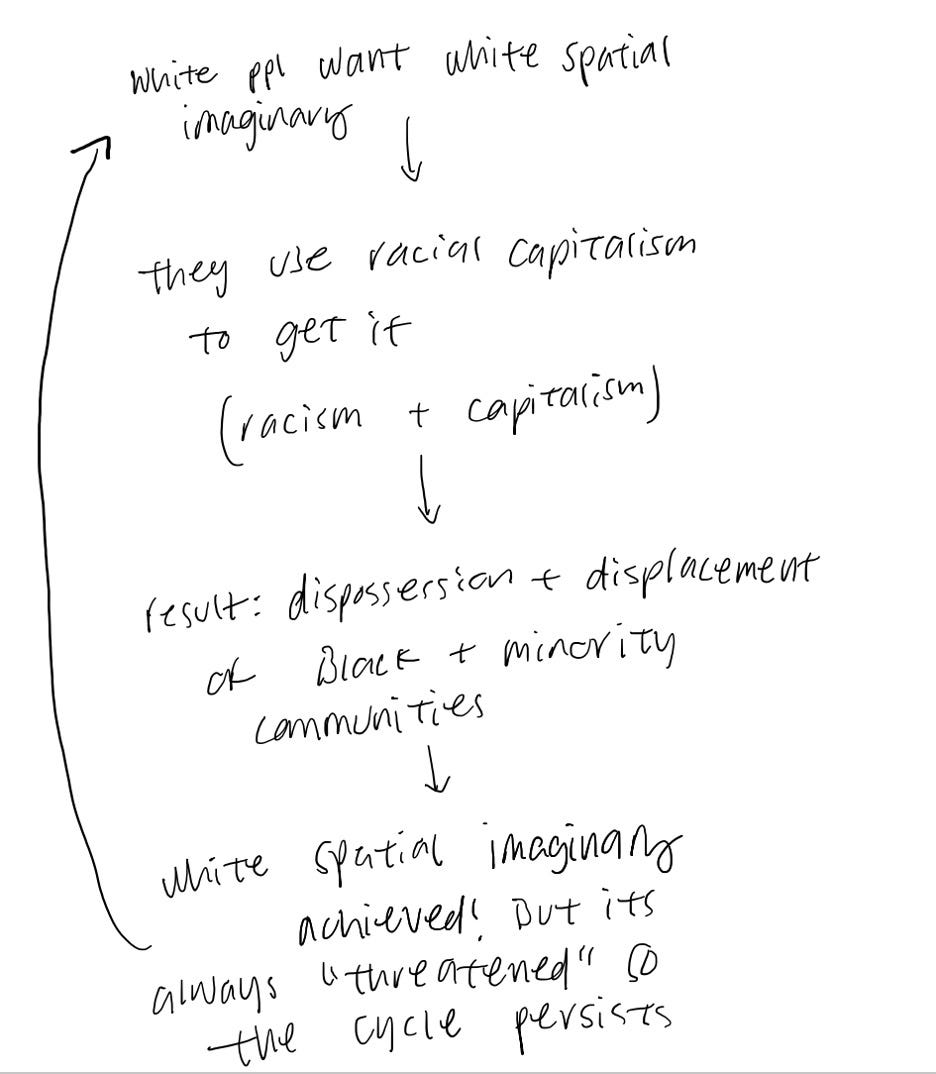 white ppl want white spatial
imaginary
they use racial capitalism
to get it
(racism + capitalism)
result: dispossession + displacement
of Black + minority
communities
white spatial imaginary
achieved! But its
always "threatened" so
the cycle persists